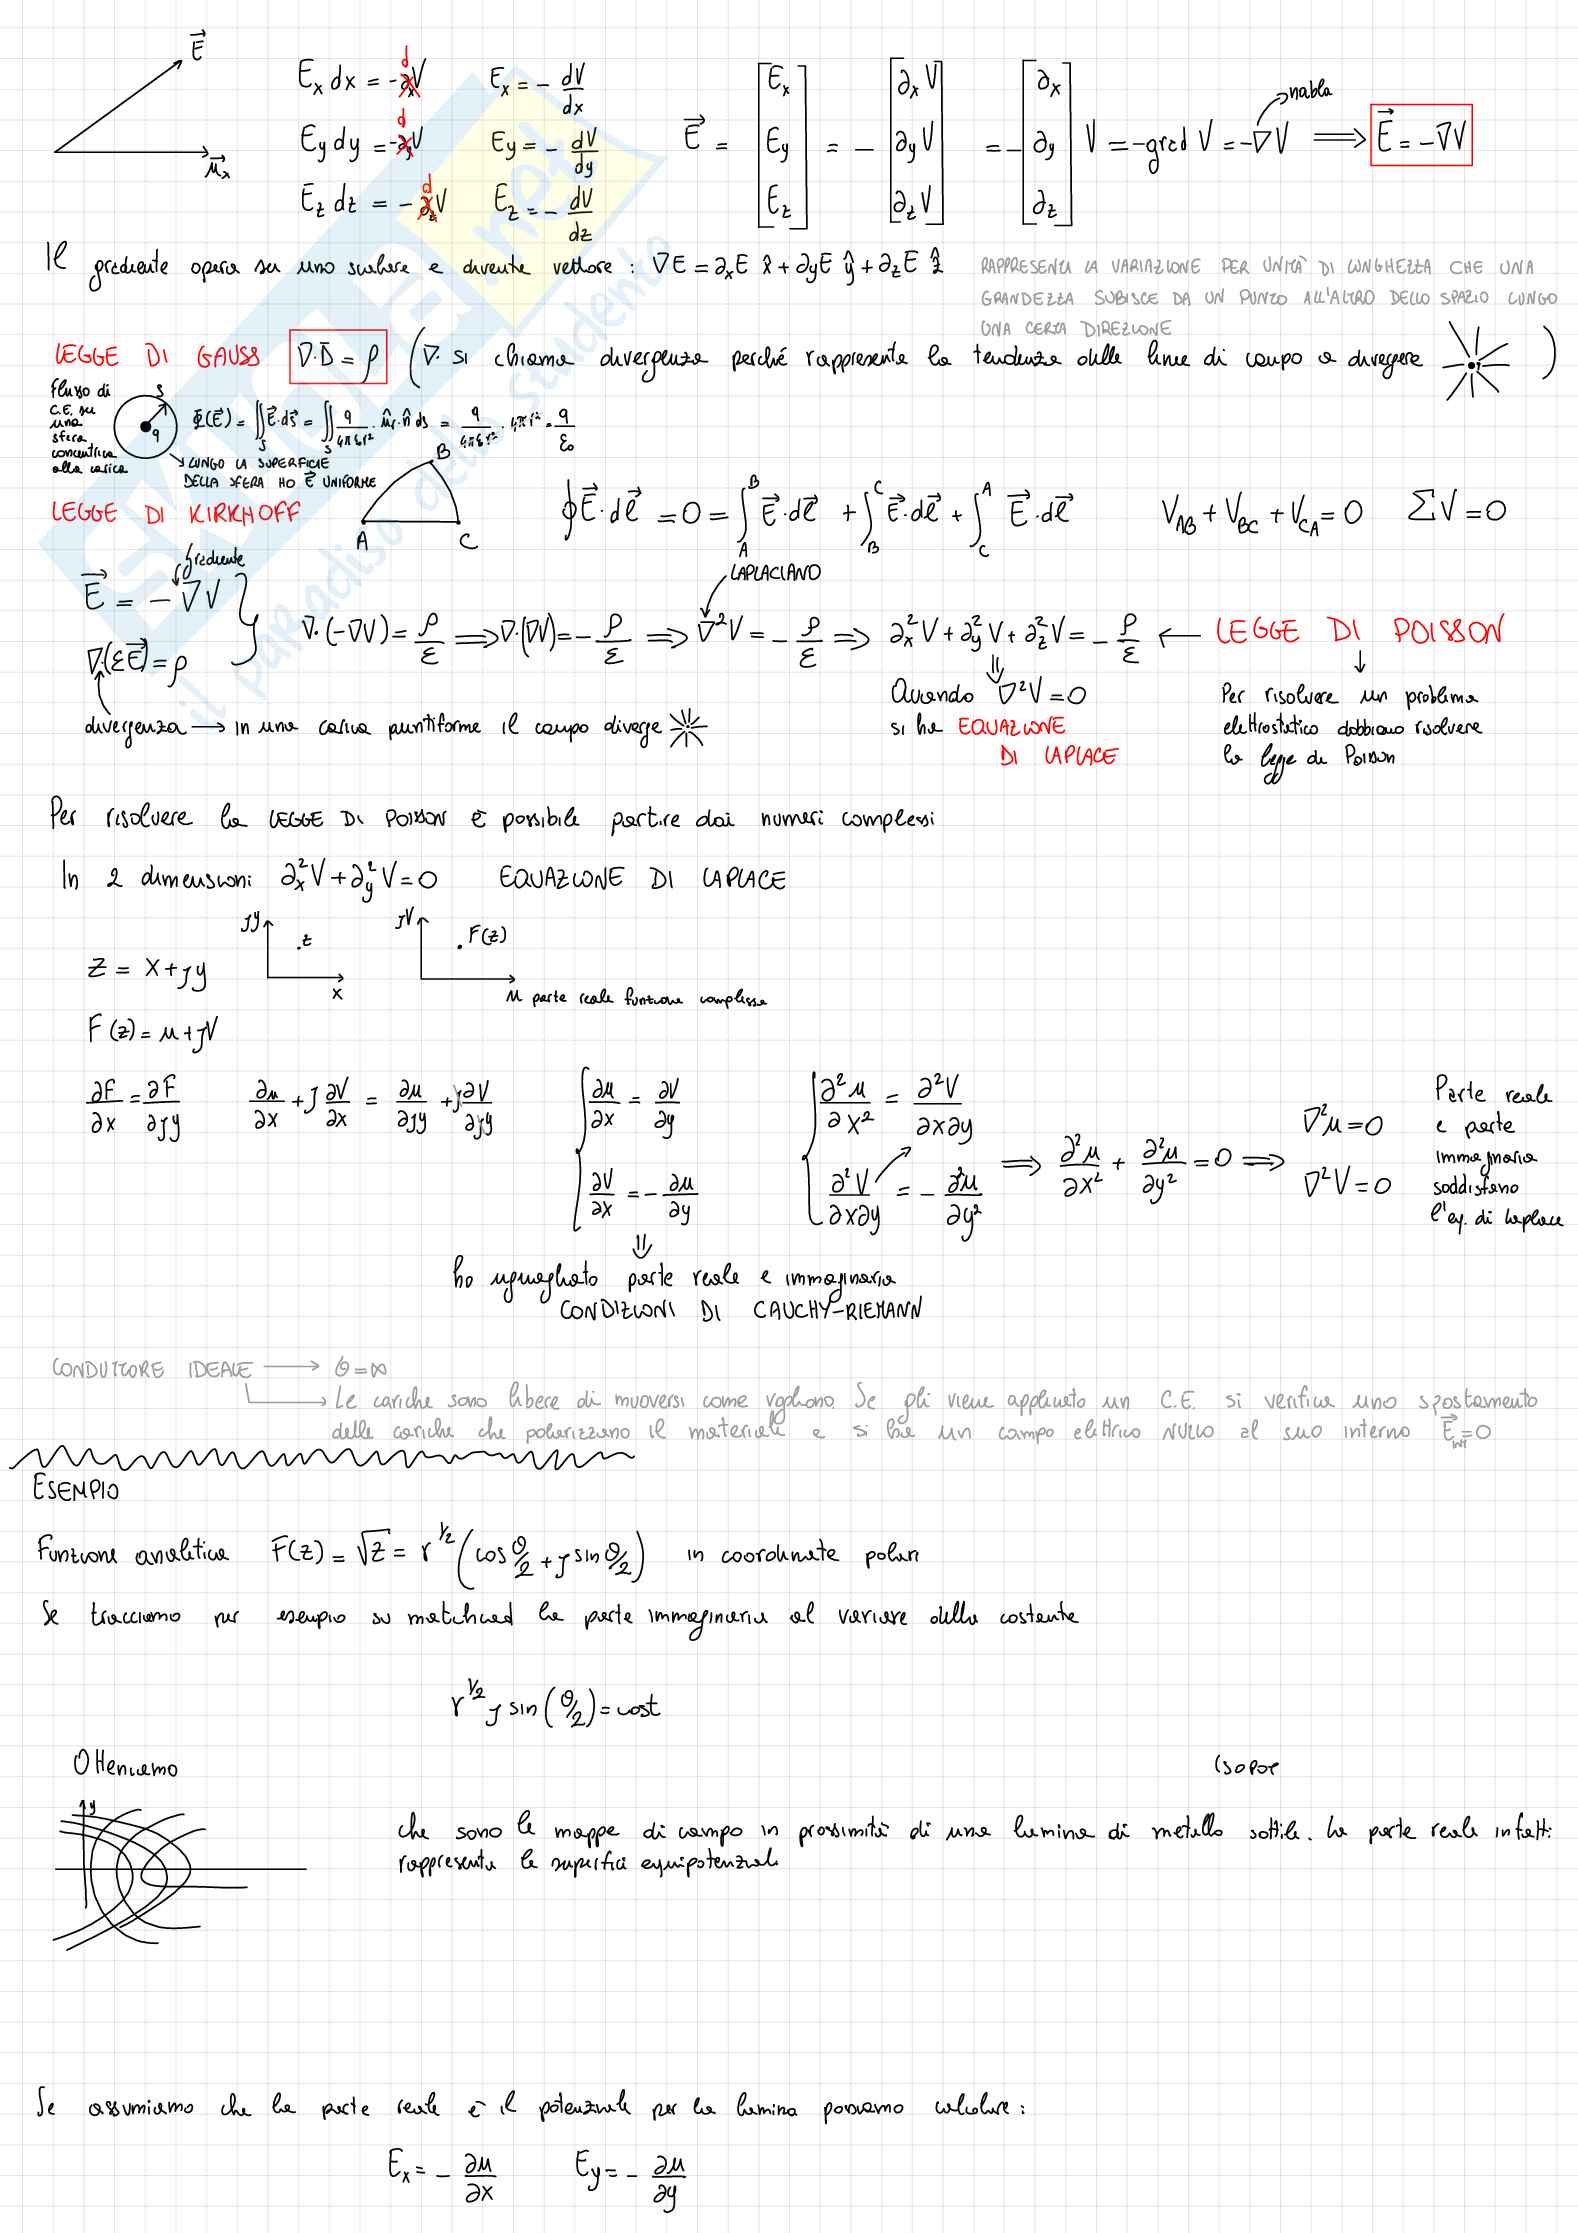 E⃗
u⃗ₓ
Eₓ dx = -dV    Eₓ = - dV/dx
E_y dy = -dV    E_y = - dV/dy
E_z dz = -dV    E_z = - dV/dz
E⃗ = [Eₓ E_y E_z] = - [∂ₓV ∂_yV ∂_zV] = - [∂ₓ ∂_y ∂_z] V = -grad V = -∇V ⟹ E⃗ = -∇V
nabla
Il gradiente opera su uno scalare e diventa vettore : ∇E = ∂ₓE x̂ + ∂_yE ŷ + ∂_zE ẑ
RAPPRESENTA LA VARIAZIONE PER UNITÀ DI LUNGHEZZA CHE UNA
GRANDEZZA SUBISCE DA UN PUNTO ALL'ALTRO DELLO SPAZIO LUNGO
UNA CERTA DIREZIONE
LEGGE DI GAUSS ∇·D = ρ (∇· si chiama divergenza perché rappresenta la tendenza delle linee di campo a divergere )
flusso di
C.E. su
una
sfera
concentrica
alla carica
S
q
Φ(E⃗) = ∬_S E⃗·ds⃗ = ∬_S q/4πεr² · û_r · n̂ ds = q/4πεr² · 4πr² = q/ε₀
LUNGO LA SUPERFICIE
DELLA SFERA HO E⃗ UNIFORME
LEGGE DI KIRKHOFF
A B C
∮E⃗·dl⃗ = 0 = ∫_A^B E⃗·dl⃗ + ∫_B^C E⃗·dl⃗ + ∫_C^A E⃗·dl⃗    V_AB + V_BC + V_CA = 0    ΣV = 0
gradiente
LAPLACIANO
E⃗ = -∇V
∇·(εE⃗) = ρ
∇·(-∇V) = ρ/ε ⟹ ∇·(∇V) = - ρ/ε ⟹ ∇²V = - ρ/ε ⟹ ∂ₓ²V + ∂_y²V + ∂_z²V = - ρ/ε ← LEGGE DI POISSON
divergenza → in una carica puntiforme il campo diverge
Quando ∇²V = 0
si ha EQUAZIONE
DI LAPLACE
Per risolvere un problema
elettrostatico dobbiamo risolvere
la legge di Poisson
Per risolvere la LEGGE DI POISSON è possibile partire dai numeri complessi
In 2 dimensioni ∂ₓ²V + ∂_y²V = 0    EQUAZIONE DI LAPLACE
jy    .z    x
jV    .F(z)    u parte reale funzione complessa
Z = X + jy
F(z) = u + jV
∂F/∂x = ∂F/∂jy    ∂u/∂x + j ∂V/∂x = ∂u/∂jy + j∂V/∂jy
{ ∂u/∂x = ∂V/∂y
∂V/∂x = - ∂u/∂y
{ ∂²u/∂x² = ∂²V/∂x∂y
∂²V/∂x∂y = - ∂²u/∂y²
⟹ ∂²u/∂x² + ∂²u/∂y² = 0 ⟹
∇²u = 0
∇²V = 0
Parte reale
e parte
immaginaria
soddisfano
l'eq. di Laplace
ho uguagliato parte reale e immaginaria
CONDIZIONI DI CAUCHY-RIEMANN
CONDUTTORE IDEALE → σ = ∞
Le cariche sono libere di muoversi come vogliono. Se gli viene applicato un C.E. si verifica uno spostamento
delle cariche che polarizzano il materiale e si ha un campo elettrico NULLO al suo interno E⃗_int = 0
ESEMPIO
Funzione analitica F(z) = √z = r^½ (cos θ/2 + j sin θ/2) in coordinate polari
Se tracciamo per esempio su mathcad la parte immaginaria al variare della costante
r^½ j sin(θ/2) = cost
Otteniamo
Isopot
y
che sono le mappe di campo in prossimità di una lamina di metallo sottile. La parte reale infatti
rappresenta le superfici equipotenziali
Se assumiamo che la parte reale è il potenziale per la lamina possiamo calcolare :
Eₓ = - ∂u/∂x    E_y = - ∂u/∂y
SKUOLA.net
il paradiso dello studente